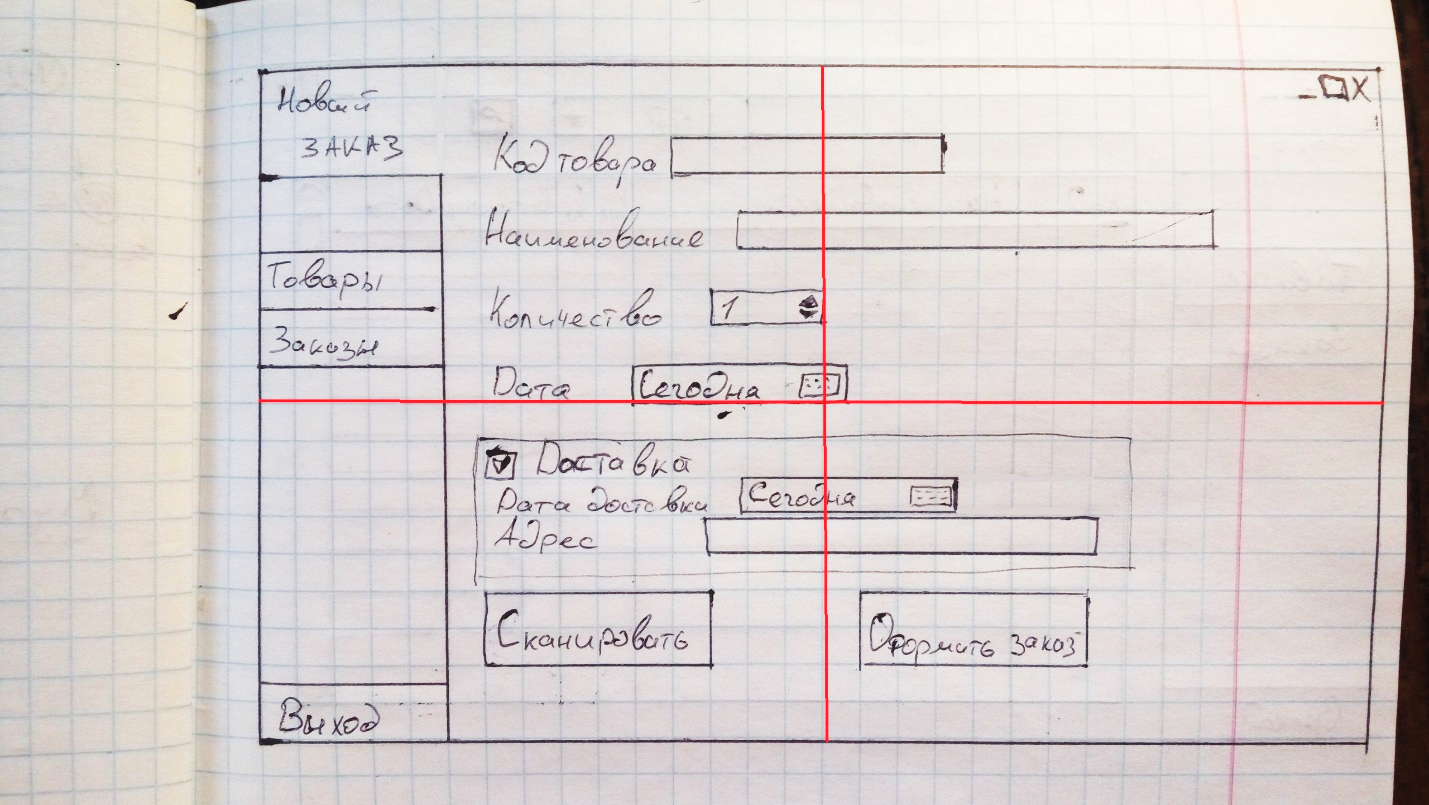 Новый
ЗАКАЗ
Товары
Заказы
Выход
Код товара
Наименование
Количество 1
Дата Сегодня
Доставка
Дата доставки Сегодня
Адрес
Сканировать
Оформить заказ